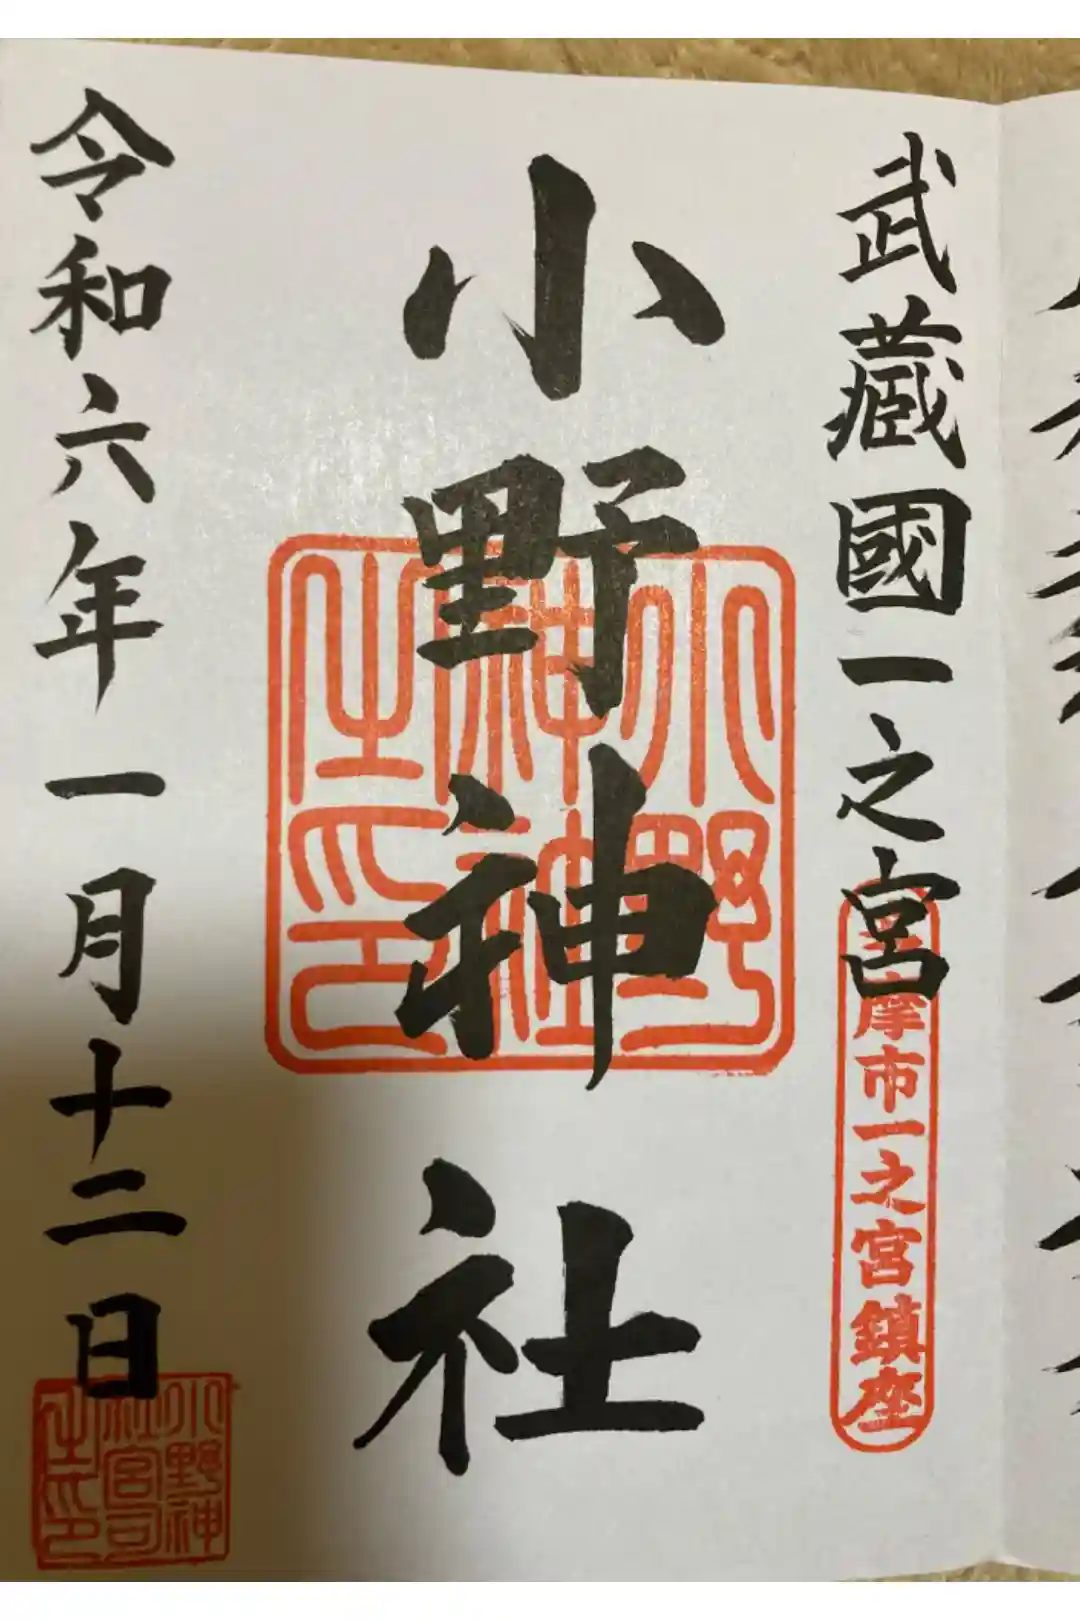 武蔵國一之宮
摩市一之宮鎮座
小野神社
小野神社之印
令和六年一月十二日
小野神社宮司之印